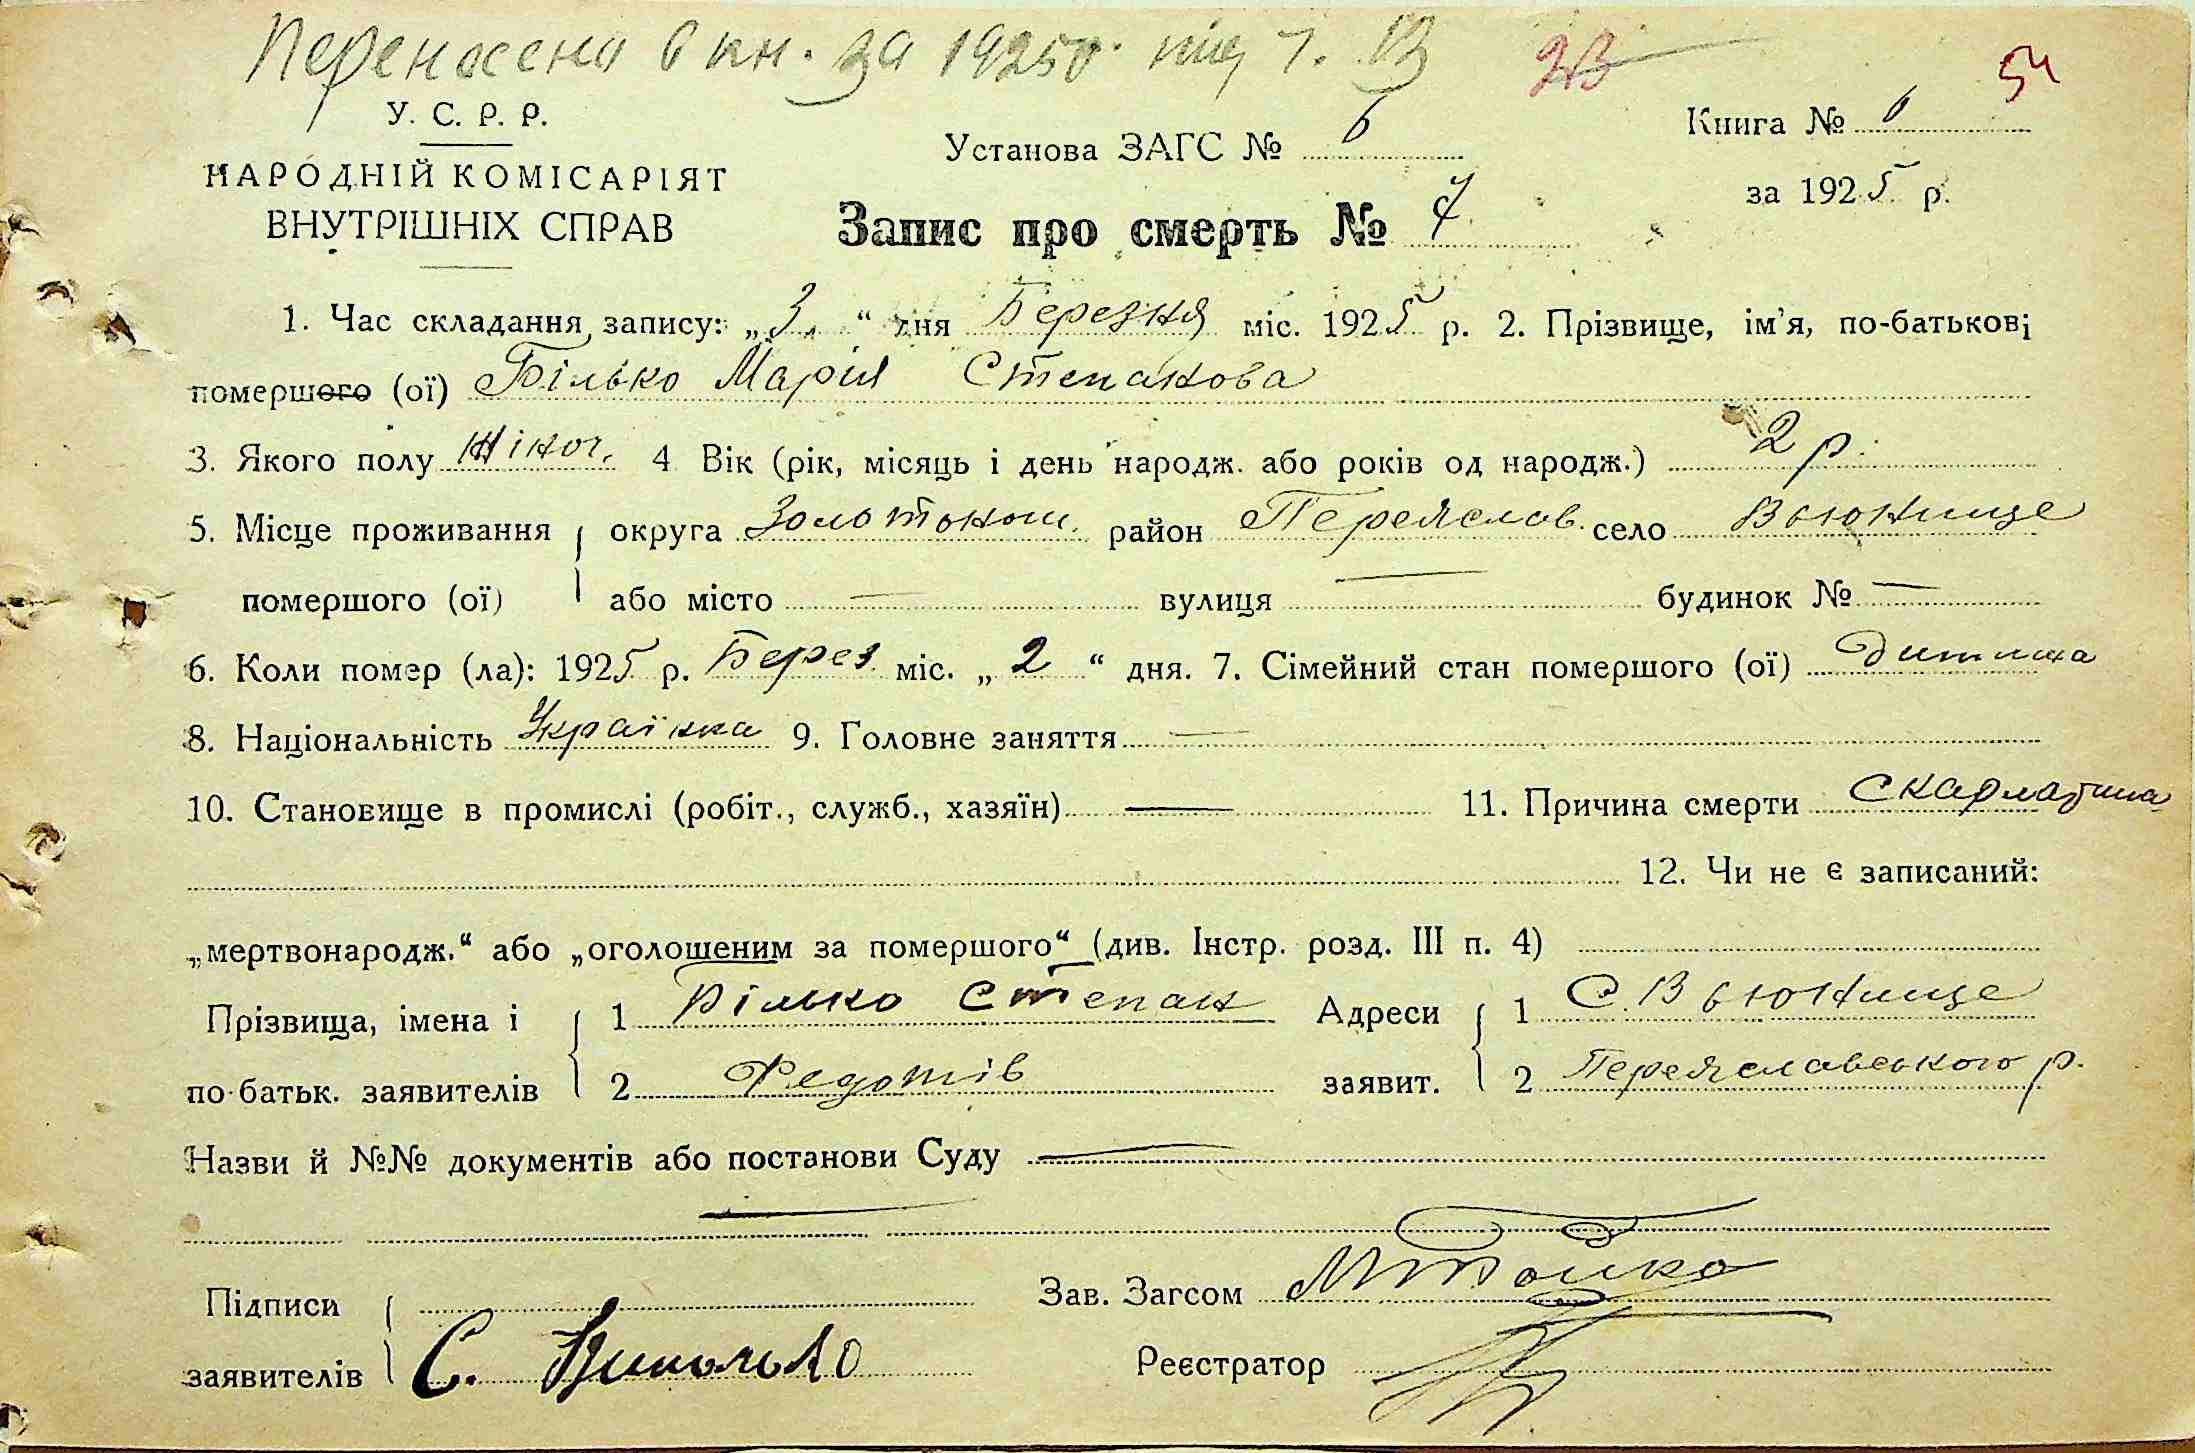 Перенесено в кн. за 1925 р. під ч. 13
54
У. С. Р. Р.
НАРОДНІЙ КОМІСАРІЯТ
ВНУТРІШНІХ СПРАВ
Установа ЗАГС № 6
Книга № 6
за 1925 р.
Запис про смерть № 7
1. Час складання запису: „3.“ дня Березня міс. 1925 р. 2. Прізвище, ім'я, по-батькові
помершого (ої) Білько Марія Степанова
3. Якого полу Жіноч. 4 Вік (рік, місяць і день народж. або років од народж.) 2 р.
5. Місце проживання округа Золотонош. район Переяслов. село Вьюнище
помершого (ої) або місто — вулиця — будинок № —
6. Коли помер (ла): 1925 р. Берез. міс. „2“ дня. 7. Сімейний стан помершого (ої) дитина
8. Національність Українка 9. Головне заняття —
10. Становище в промислі (робіт., служб., хазяїн) — 11. Причина смерти Скарлатина
12. Чи не є записаний:
„мертвонародж.“ або „оголошеним за помершого“ (див. Інстр. розд. III п. 4)
Прізвища, імена і 1 Білько Степан Адреси 1 С. Вьюнище
по-батьк. заявителів 2 Федотів заявит. 2 Переяславського р.
Назви й №№ документів або постанови Суду —
Підписи Зав. Загсом
заявителів С. Реєстратор